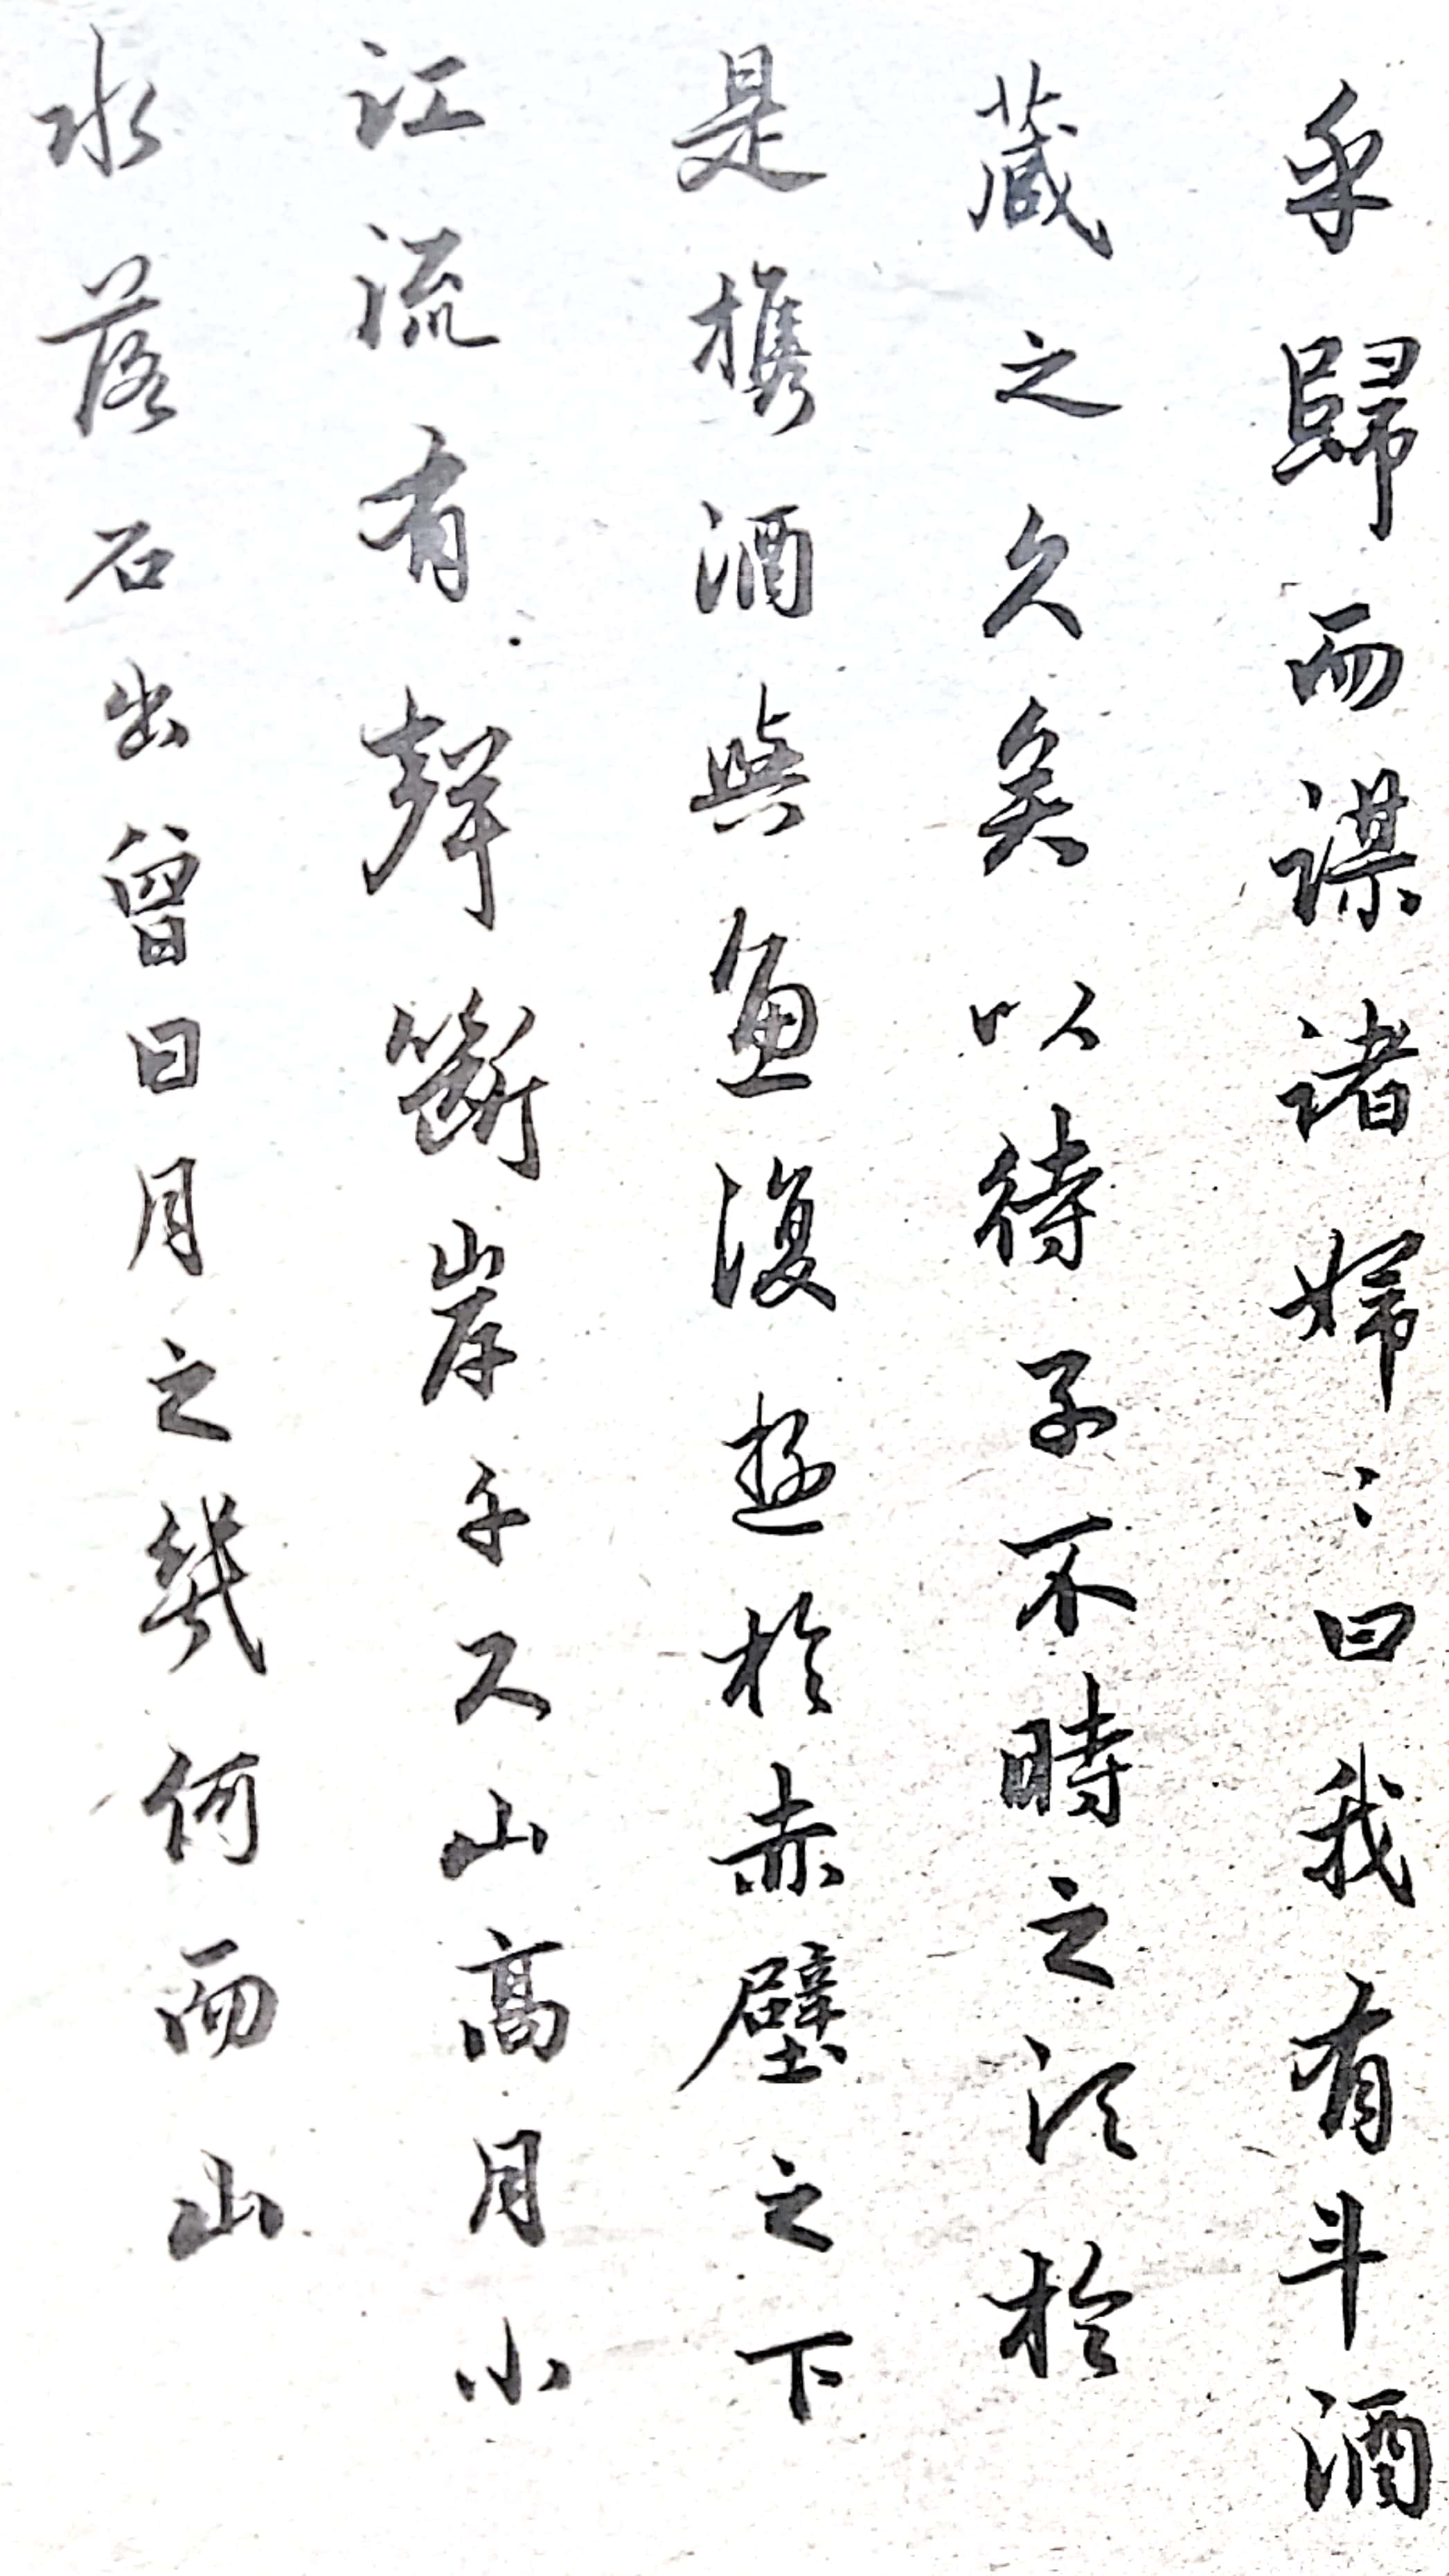 乎歸而謀諸婦〻曰我有斗酒
藏之久矣以待子不時之須於
是攜酒與魚復遊於赤壁之下
江流有聲斷岸千尺山高月小
水落石出曾日月之幾何而山